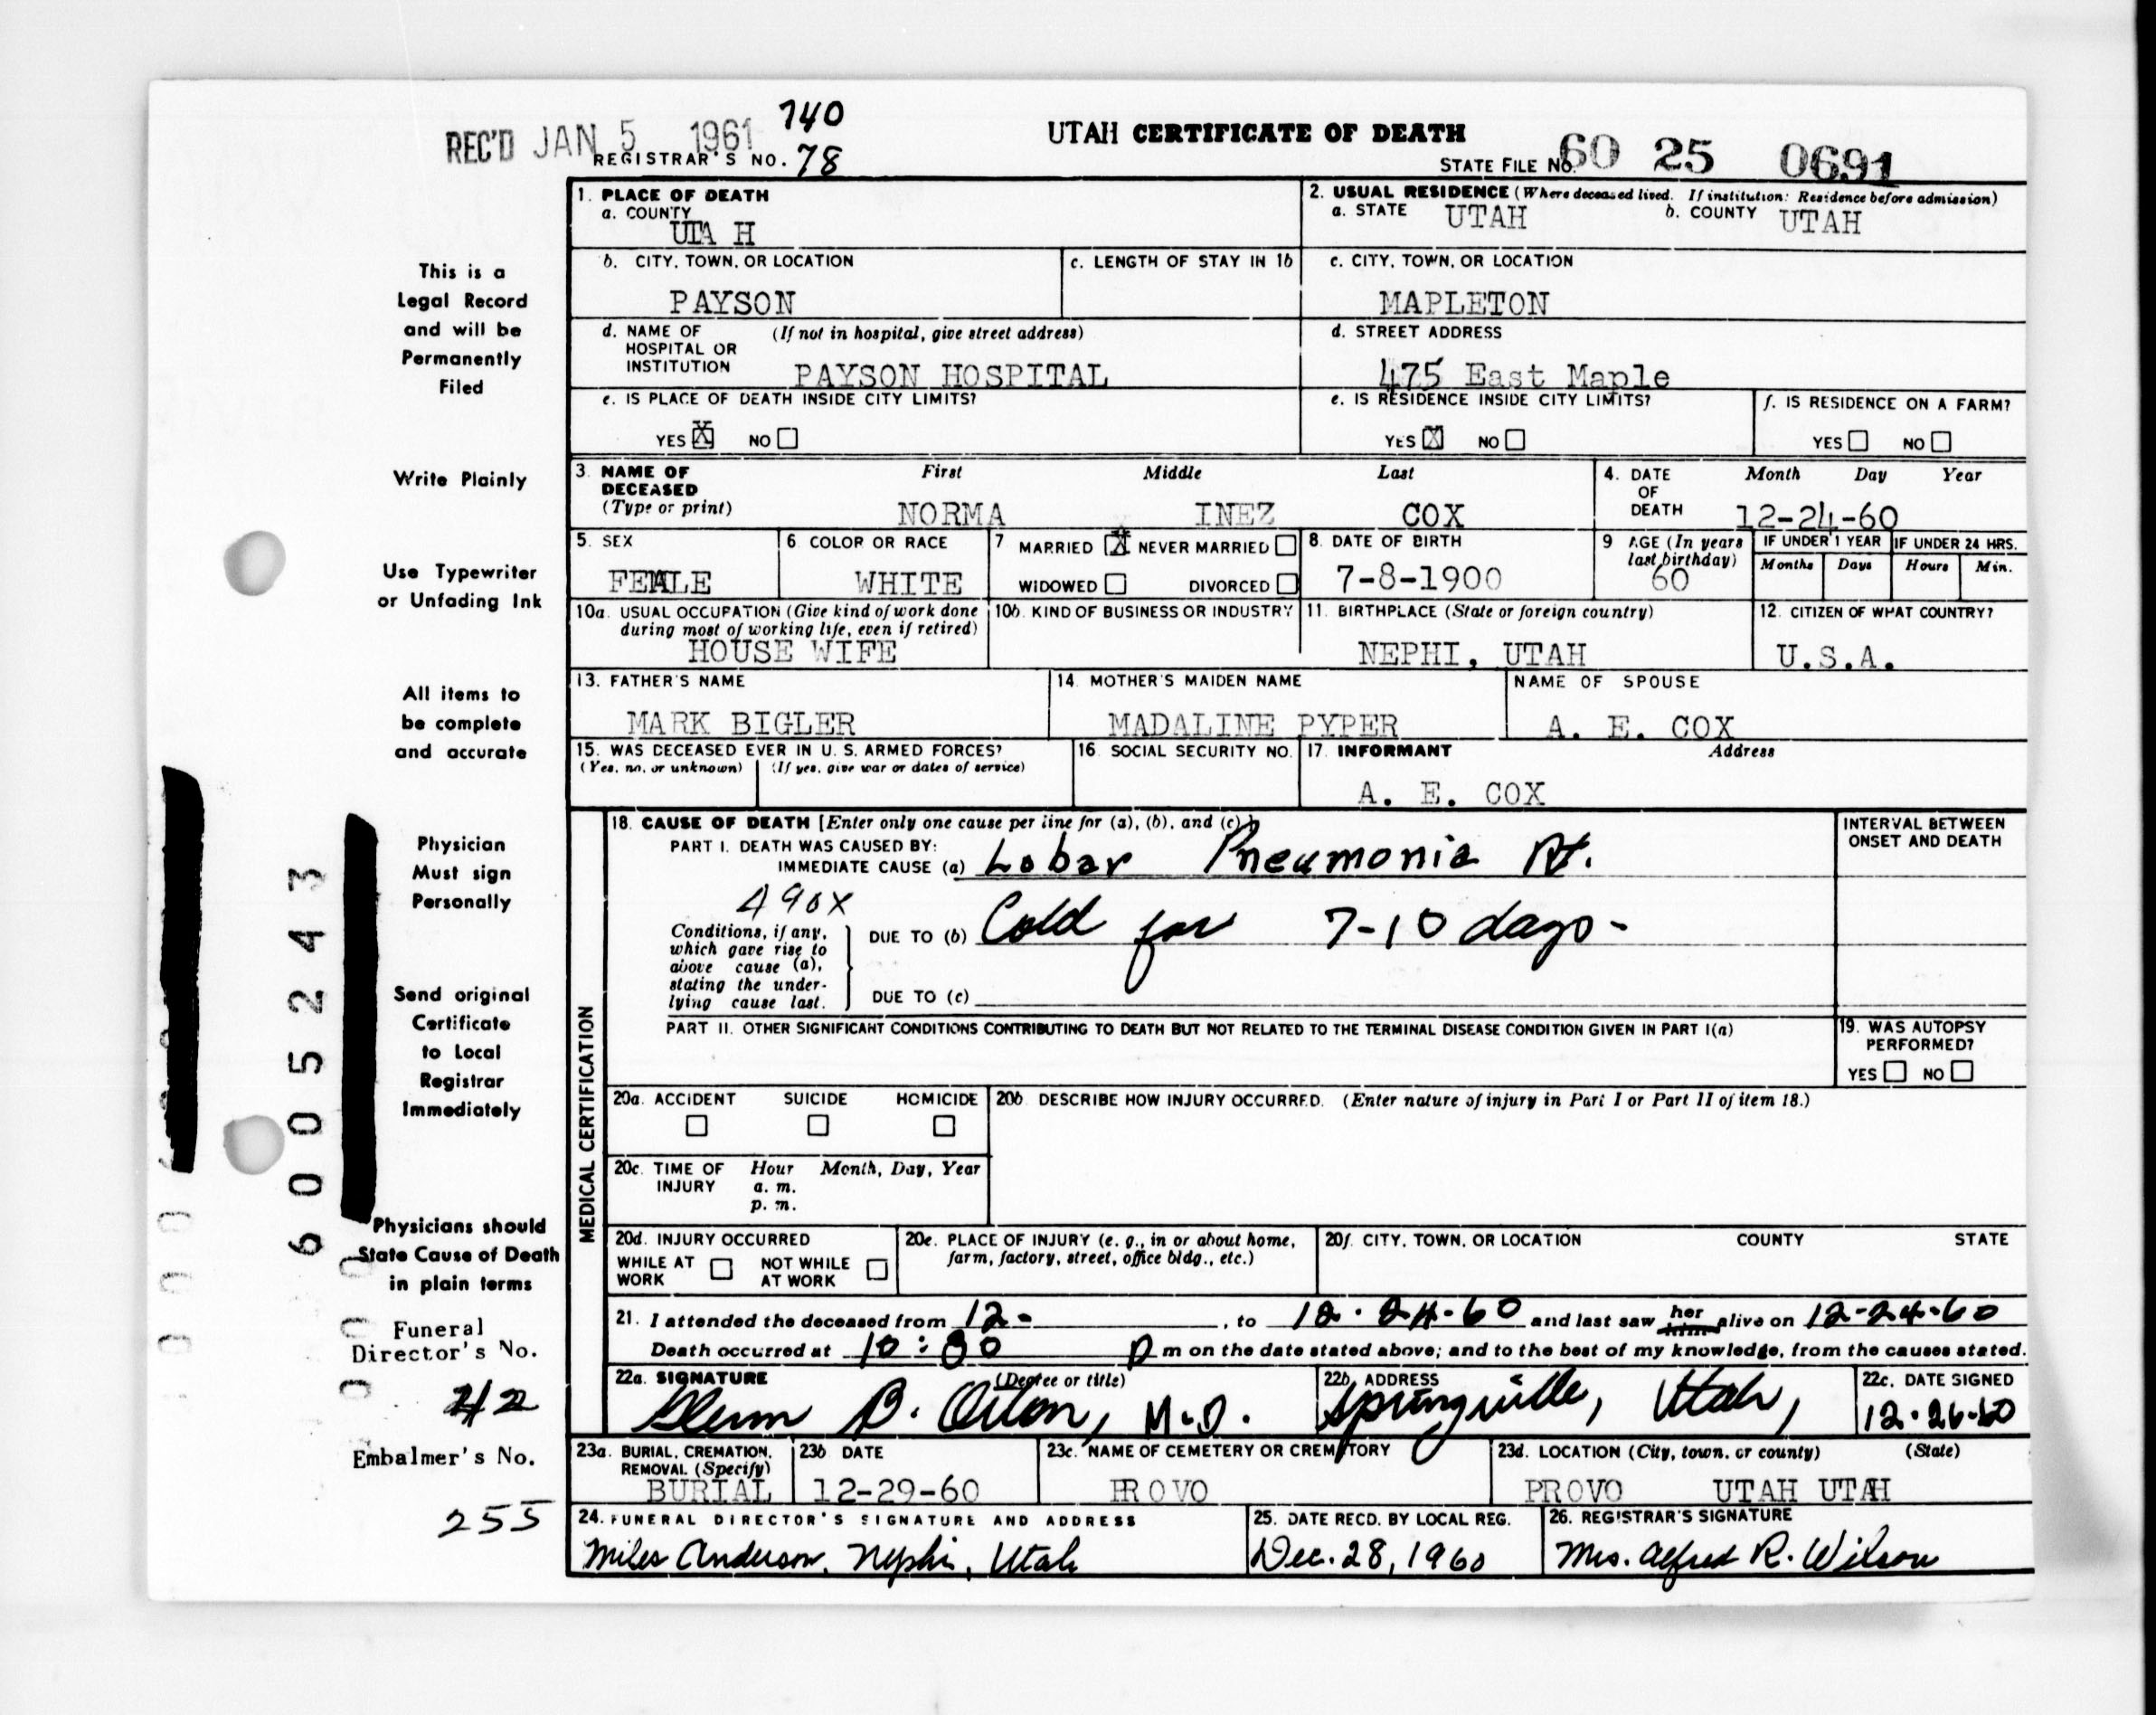 740
REC'D JAN 5 1961
REGISTRAR'S NO. 78
UTAH CERTIFICATE OF DEATH
STATE FILE NO. 60 25 0691
This is a
Legal Record
and will be
Permanently
Filed
Write Plainly
Use Typewriter
or Unfading Ink
All items to
be complete
and accurate
Physician
Must sign
Personally
Send original
Certificate
to Local
Registrar
Immediately
Physicians should
State Cause of Death
in plain terms
Funeral
Director's No.
42
Embalmer's No.
255
6005243
1. PLACE OF DEATH
a. COUNTY
UTA H
2. USUAL RESIDENCE (Where deceased lived. If institution: Residence before admission)
a. STATE UTAH b. COUNTY UTAH
b. CITY, TOWN, OR LOCATION
PAYSON
c. LENGTH OF STAY IN 1b
c. CITY, TOWN, OR LOCATION
MAPLETON
d. NAME OF (If not in hospital, give street address)
HOSPITAL OR
INSTITUTION PAYSON HOSPITAL
d. STREET ADDRESS
475 East Maple
e. IS PLACE OF DEATH INSIDE CITY LIMITS?
YES X NO
e. IS RESIDENCE INSIDE CITY LIMITS?
YES X NO
f. IS RESIDENCE ON A FARM?
YES NO
3. NAME OF First Middle Last
DECEASED
(Type or print) NORMA INEZ COX
4. DATE Month Day Year
OF
DEATH 12-24-60
5. SEX
FEMALE
6. COLOR OR RACE
WHITE
7 MARRIED X NEVER MARRIED
WIDOWED DIVORCED
8. DATE OF BIRTH
7-8-1900
9 AGE (In years
last birthday)
60
IF UNDER 1 YEAR
Months Days
IF UNDER 24 HRS.
Hours Min.
10a. USUAL OCCUPATION (Give kind of work done
during most of working life, even if retired)
HOUSE WIFE
10b. KIND OF BUSINESS OR INDUSTRY
11. BIRTHPLACE (State or foreign country)
NEPHI, UTAH
12. CITIZEN OF WHAT COUNTRY?
U.S.A.
13. FATHER'S NAME
MARK BIGLER
14. MOTHER'S MAIDEN NAME
MADALINE PYPER
NAME OF SPOUSE
A. E. COX
15. WAS DECEASED EVER IN U. S. ARMED FORCES?
(Yes, no, or unknown) (If yes, give war or dates of service)
16. SOCIAL SECURITY NO.
17. INFORMANT Address
A. E. COX
MEDICAL CERTIFICATION
18. CAUSE OF DEATH [Enter only one cause per line for (a), (b), and (c).]
PART I. DEATH WAS CAUSED BY:
IMMEDIATE CAUSE (a) Lobar Pneumonia Rt.
INTERVAL BETWEEN
ONSET AND DEATH
490X
Conditions, if any,
which gave rise to
above cause (a),
stating the under-
lying cause last.
DUE TO (b) Cold for 7-10 days-
DUE TO (c)
PART II. OTHER SIGNIFICANT CONDITIONS CONTRIBUTING TO DEATH BUT NOT RELATED TO THE TERMINAL DISEASE CONDITION GIVEN IN PART I(a)
19. WAS AUTOPSY
PERFORMED?
YES NO
20a. ACCIDENT SUICIDE HOMICIDE
20b. DESCRIBE HOW INJURY OCCURRED. (Enter nature of injury in Part I or Part II of item 18.)
20c. TIME OF Hour Month, Day, Year
INJURY a. m.
p. m.
20d. INJURY OCCURRED
WHILE AT WORK NOT WHILE AT WORK
20e. PLACE OF INJURY (e. g., in or about home,
farm, factory, street, office bldg., etc.)
20f. CITY, TOWN, OR LOCATION COUNTY STATE
21. I attended the deceased from 12- , to 12-24-60 and last saw her him alive on 12-24-60
Death occurred at 10:00 p m on the date stated above; and to the best of my knowledge, from the causes stated.
22a. SIGNATURE (Degree or title)
Glenn B. Orton, M.D.
22b. ADDRESS
Springville, Utah,
22c. DATE SIGNED
12-26-60
23a. BURIAL, CREMATION,
REMOVAL (Specify)
BURIAL
23b DATE
12-29-60
23c. NAME OF CEMETERY OR CREMATORY
PROVO
23d. LOCATION (City, town, or county) (State)
PROVO UTAH UTAH
24. FUNERAL DIRECTOR'S SIGNATURE AND ADDRESS
Miles Anderson, Nephi, Utah
25. DATE RECD. BY LOCAL REG.
Dec. 28, 1960
26. REGISTRAR'S SIGNATURE
Mrs. Alfred R. Wilson